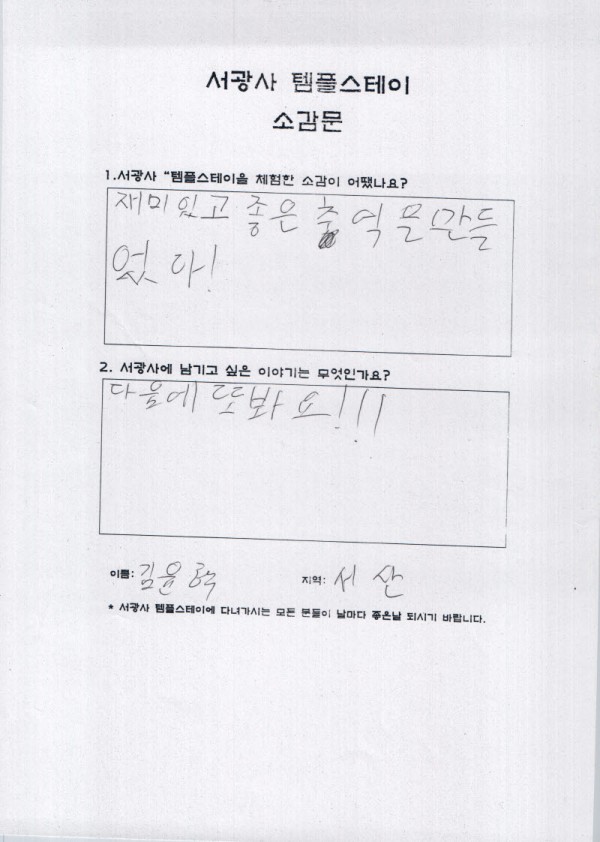 서광사 템플스테이
소감문
1.서광사 "템플스테이을 체험한 소감이 어땠나요?
재미있고 좋은 출억 믄
었다!
2. 서광사에 남기고 싶은 이야기는 무엇인가요?
다음에 또봐요!!!
이름: 김윤 지역: 서산
* 서광사 템플스테이에 다녀가시는 모든 분들이 날마다 좋은날 되시기 바랍니다.